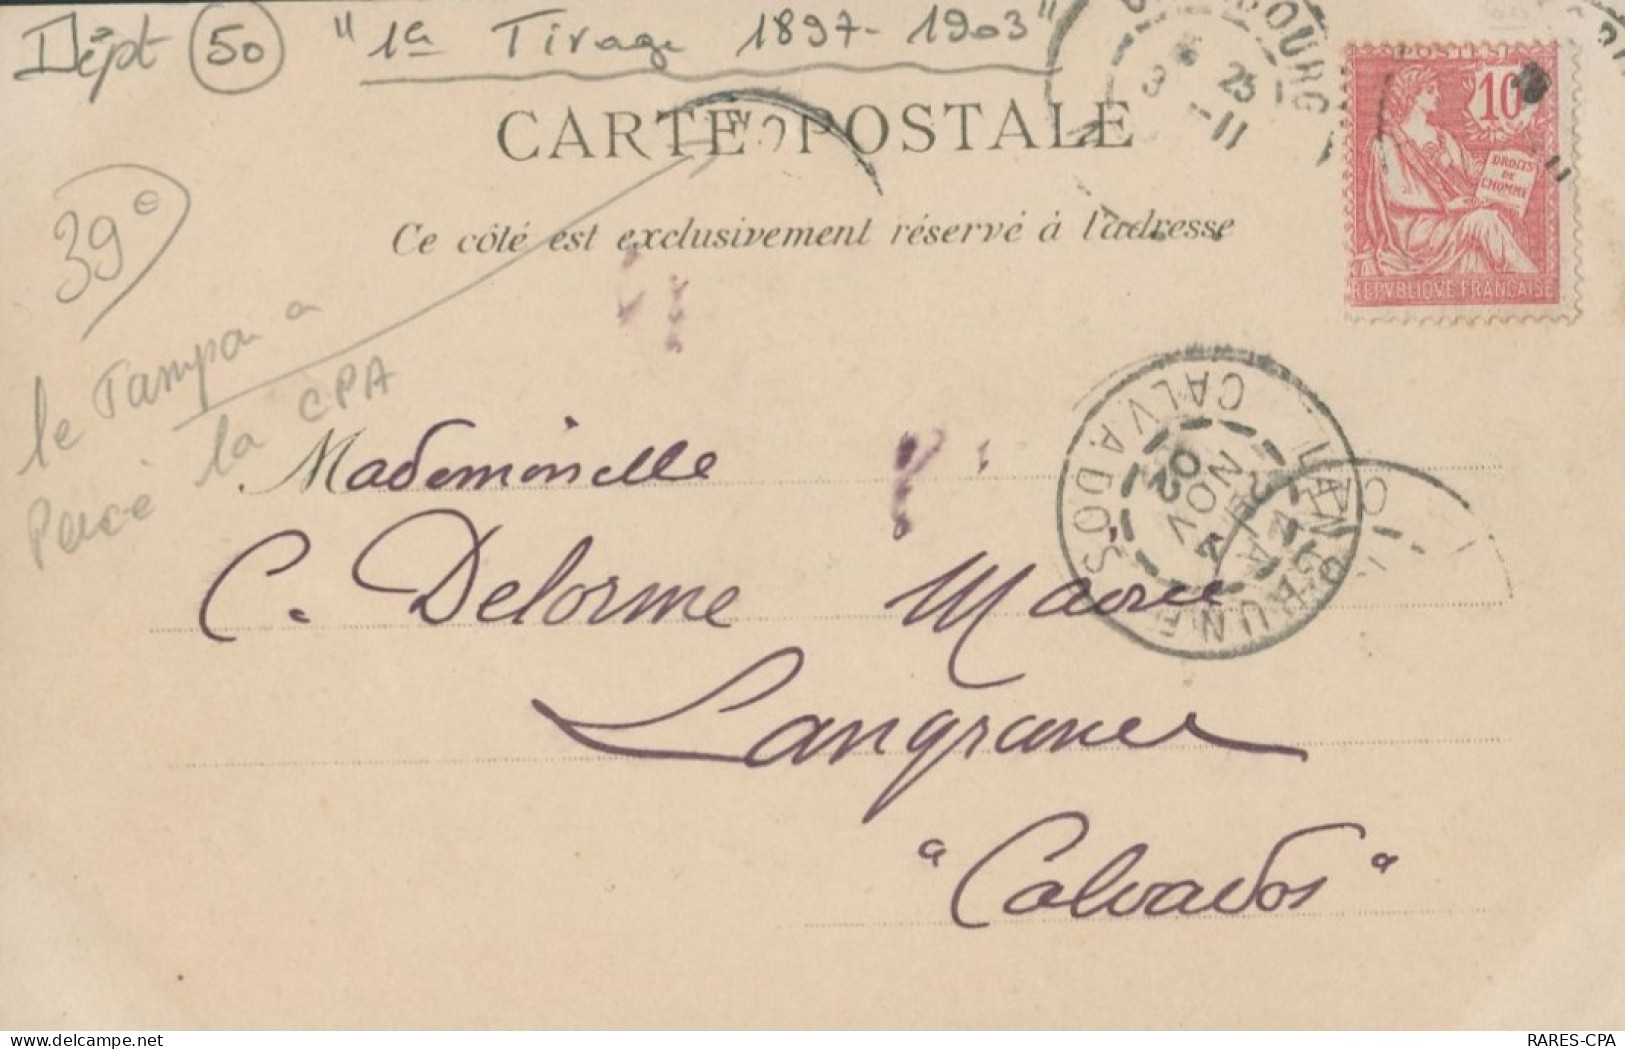 Dépt 50 "1er Tirage 1897-1903"
CARTE POSTALE
Ce côté est exclusivement réservé à l'adresse
39e
le Tampon a
Percé la CPA
POSTES
10
DROITS
DE
L'HOMME
REPVBLIQVE FRANÇAISE
25
11
LANGRUNE
CALVADOS
NOV
02
Mademoiselle
C. Delorme Mairie
Langrune
"Calvados"
RARES-CPA